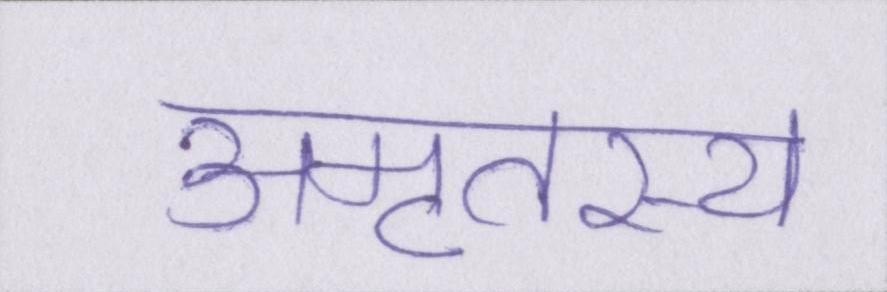 अमृतस्य